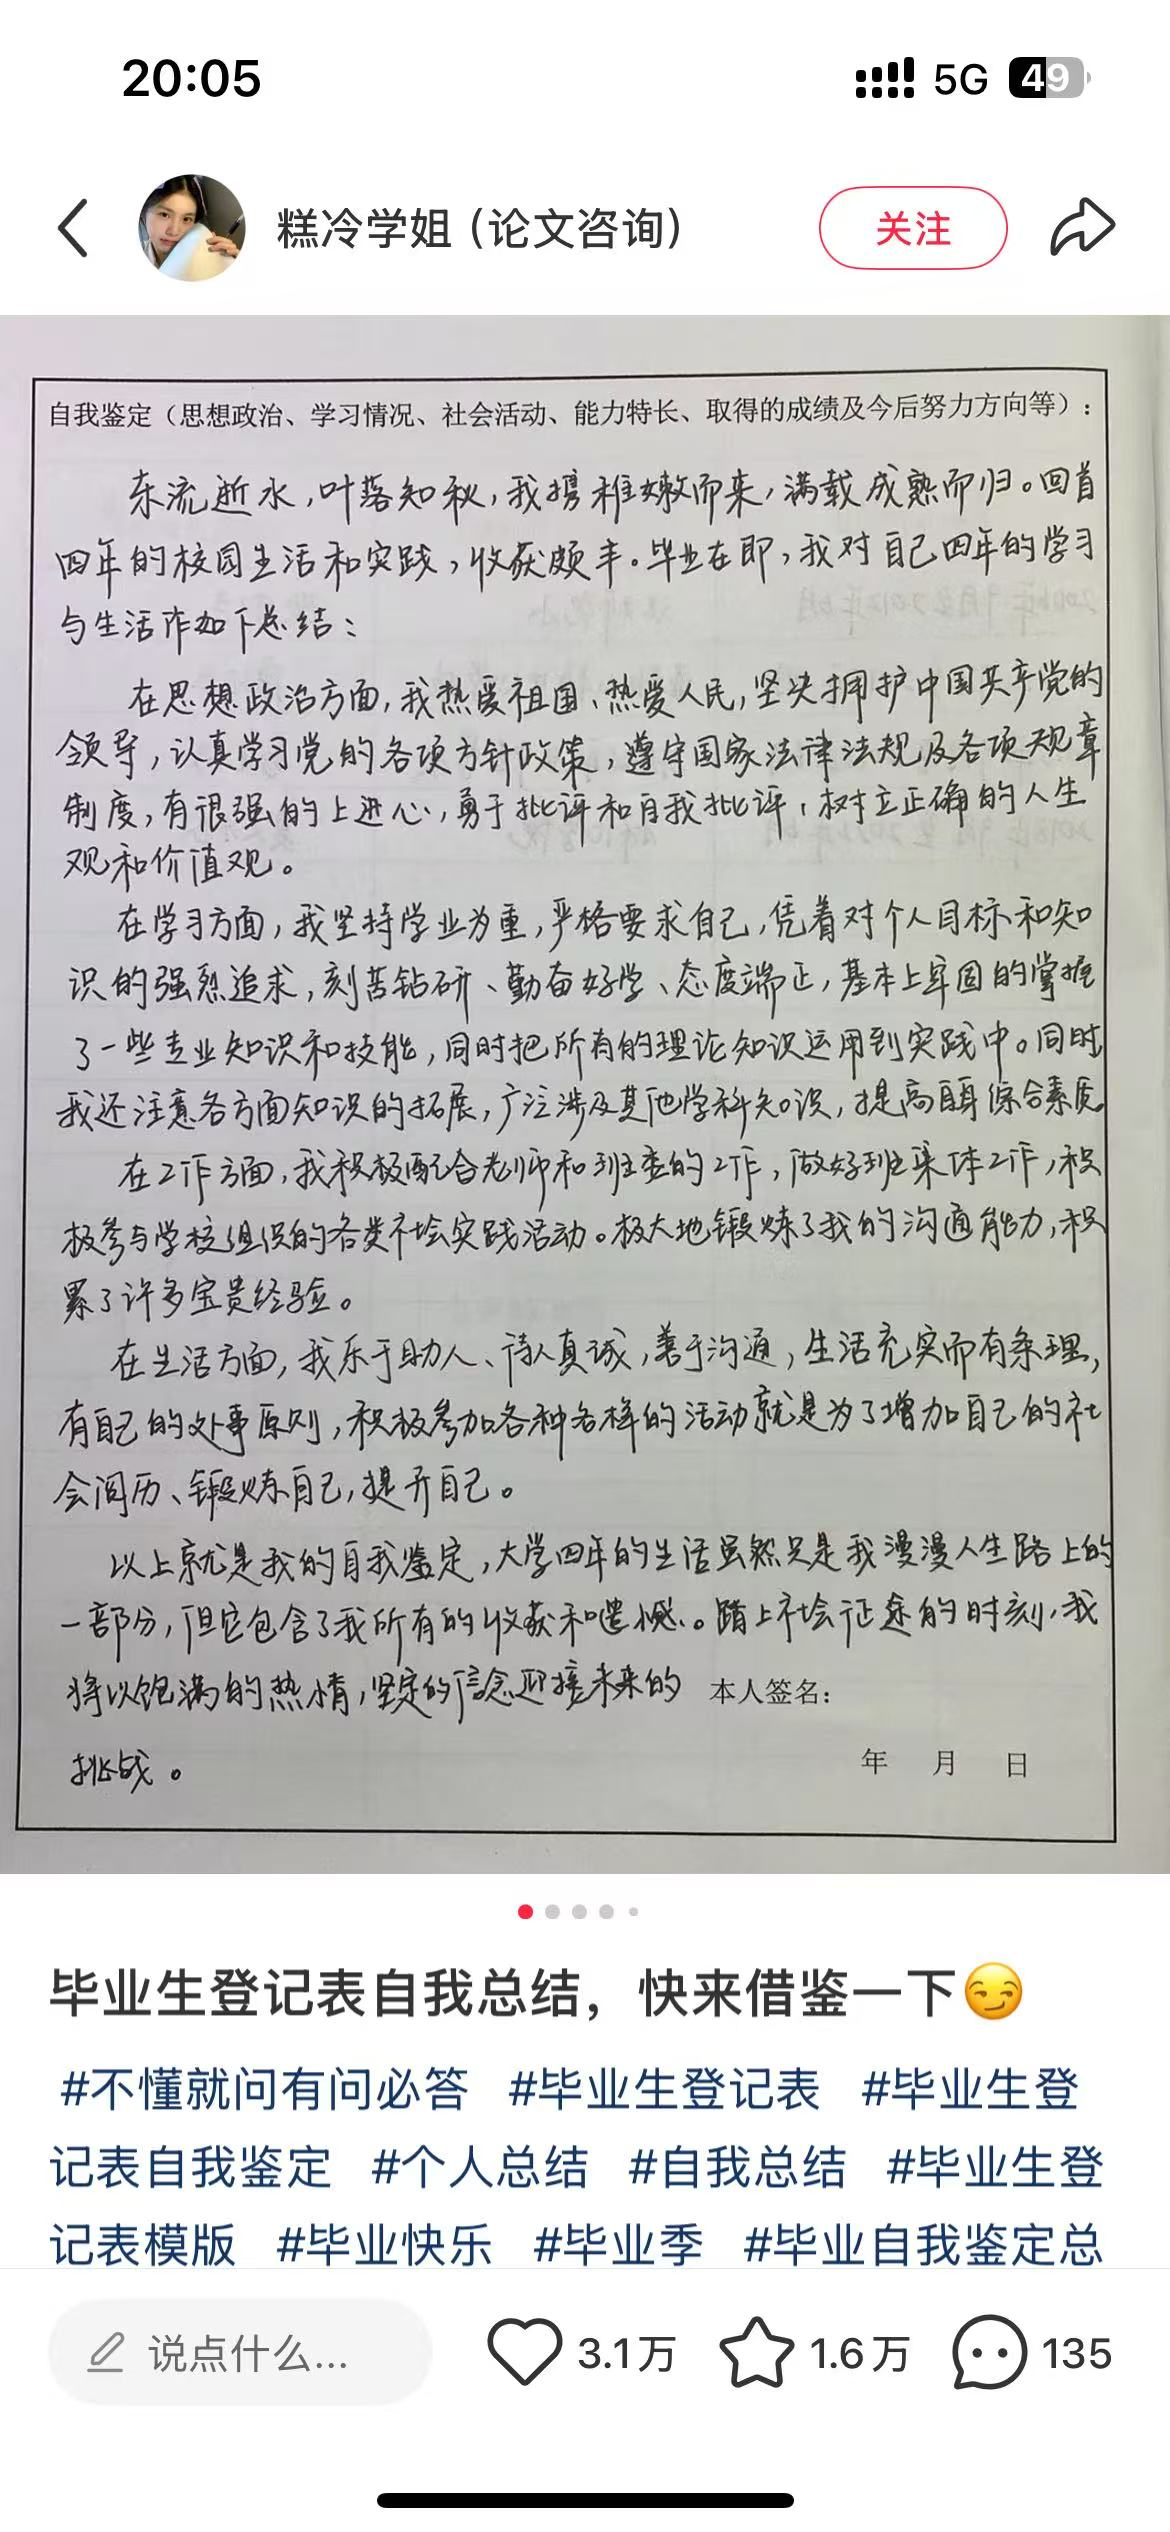 20:05
5G 49
糕冷学姐（论文咨询）
关注
自我鉴定（思想政治、学习情况、社会活动、能力特长、取得的成绩及今后努力方向等）：
东流逝水，叶落知秋，我携稚嫩而来，满载成熟而归。回首
四年的校园生活和实践，收获颇丰。毕业在即，我对自己四年的学习
与生活作如下总结：
在思想政治方面，我热爱祖国、热爱人民，坚决拥护中国共产党的
领导，认真学习党的各项方针政策，遵守国家法律法规及各项规章
制度，有很强的上进心，勇于批评和自我批评，树立正确的人生
观和价值观。
在学习方面，我坚持学业为重，严格要求自己，凭着对个人目标和知
识的强烈追求，刻苦钻研、勤奋好学、态度端正，基本上牢固的掌握
了一些专业知识和技能，同时把所有的理论知识运用到实践中。同时
我还注意各方面知识的拓展，广泛涉及其他学科知识，提高自身综合素质。
在工作方面，我积极配合老师和班委的工作，做好班集体工作，积
极参与学校组织的各类社会实践活动。极大地锻炼了我的沟通能力，积
累了许多宝贵经验。
在生活方面，我乐于助人、待人真诚，善于沟通，生活充实而有条理，
有自己的处事原则，积极参加各种各样的活动就是为了增加自己的社
会阅历、锻炼自己，提升自己。
以上就是我的自我鉴定，大学四年的生活虽然只是我漫漫人生路上的
一部分，但它包含了我所有的收获和遗憾。踏上社会征途的时刻，我
将以饱满的热情，坚定的信念迎接未来的 本人签名：
挑战。 年 月 日
毕业生登记表自我总结，快来借鉴一下😏
#不懂就问有问必答 #毕业生登记表 #毕业生登
记表自我鉴定 #个人总结 #自我总结 #毕业生登
记表模版 #毕业快乐 #毕业季 #毕业自我鉴定总
说点什么... 3.1万 1.6万 135